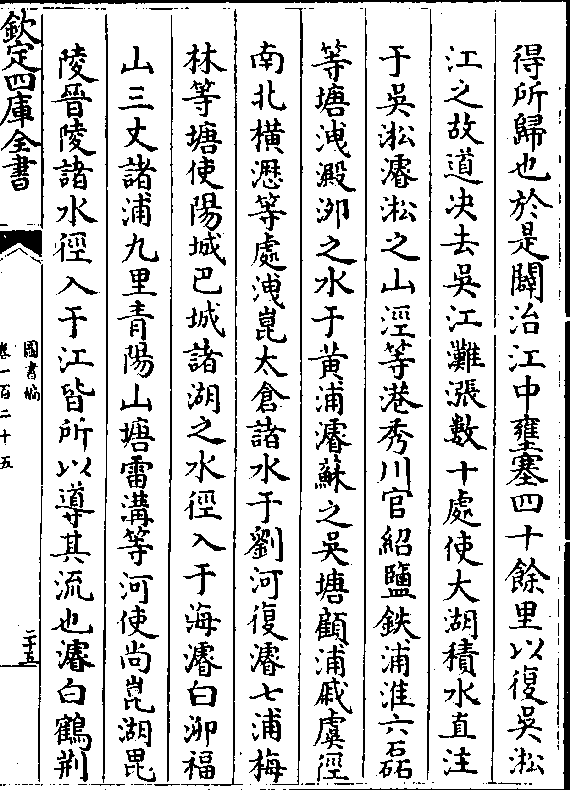 得所歸也於是闢治江中壅塞四十餘里以復吳淞
江之故道决去吳江灘漲數十處使大湖積水直注
于吳淞濬淞之山涇等港秀川官紹鹽鉄浦淮六磊
等塘洩澱泖之水于黄浦濬蘇之吳塘顧浦戚虞徑
南北橫瀝等處洩崑太倉諸水于劉河復濬七浦梅
林等塘使陽城巴城諸湖之水徑入于海濬白泖福
山三丈諸浦九里青陽山塘雷溝等河使尚崑湖毘
陵晉陵諸水徑入于江皆所以導其流也濬白鶴荆
欽定四庫全書
圖書編
卷一百二十五
二十五